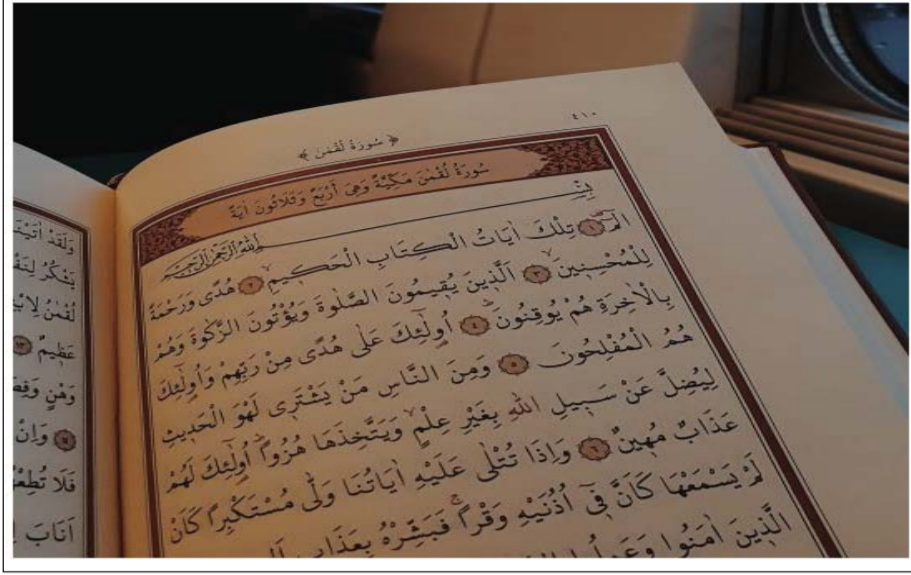 ٤١٠
﴿ سُورَةُ لُقْمٰنَ ﴾
سُورَةُ لُقْمٰنَ مَكِّيَّةٌ وَهِىَ اَرْبَعٌ وَثَلَاثُونَ اٰيَةً
بِسْمِ اللّٰهِ الرَّحْمٰنِ الرَّحِيمِ
الٓمٓ ﴿١﴾ تِلْكَ اٰيَاتُ الْكِتَابِ الْحَكِيمِ ﴿٢﴾ هُدًى وَرَحْمَةً
لِلْمُحْسِنِينَ ﴿٣﴾ اَلَّذِينَ يُقِيمُونَ الصَّلٰوةَ وَيُؤْتُونَ الزَّكٰوةَ وَهُمْ
بِالْاٰخِرَةِ هُمْ يُوقِنُونَ ﴿٤﴾ اُولٰٓئِكَ عَلٰى هُدًى مِنْ رَبِّهِمْ وَاُولٰٓئِكَ
هُمُ الْمُفْلِحُونَ ﴿٥﴾ وَمِنَ النَّاسِ مَنْ يَشْتَرِى لَهْوَ الْحَدِيثِ
لِيُضِلَّ عَنْ سَبِيلِ اللّٰهِ بِغَيْرِ عِلْمٍ وَيَتَّخِذَهَا هُزُوًا اُولٰٓئِكَ لَهُمْ
عَذَابٌ مُهِينٌ ﴿٦﴾ وَاِذَا تُتْلٰى عَلَيْهِ اٰيَاتُنَا وَلّٰى مُسْتَكْبِرًا كَاَنْ
لَمْ يَسْمَعْهَا كَاَنَّ فِٓى اُذُنَيْهِ وَقْرًا فَبَشِّرْهُ بِعَذَابٍ
الَّذِينَ اٰمَنُوا وَعَمِلُوا
وَلَقَدْ اٰتَيْنَا
يَشْكُرُ
لُقْمٰنُ
عَظِيمٌ
وَهْنٍ
وَاِنْ
فَلَا
اَنَابَ